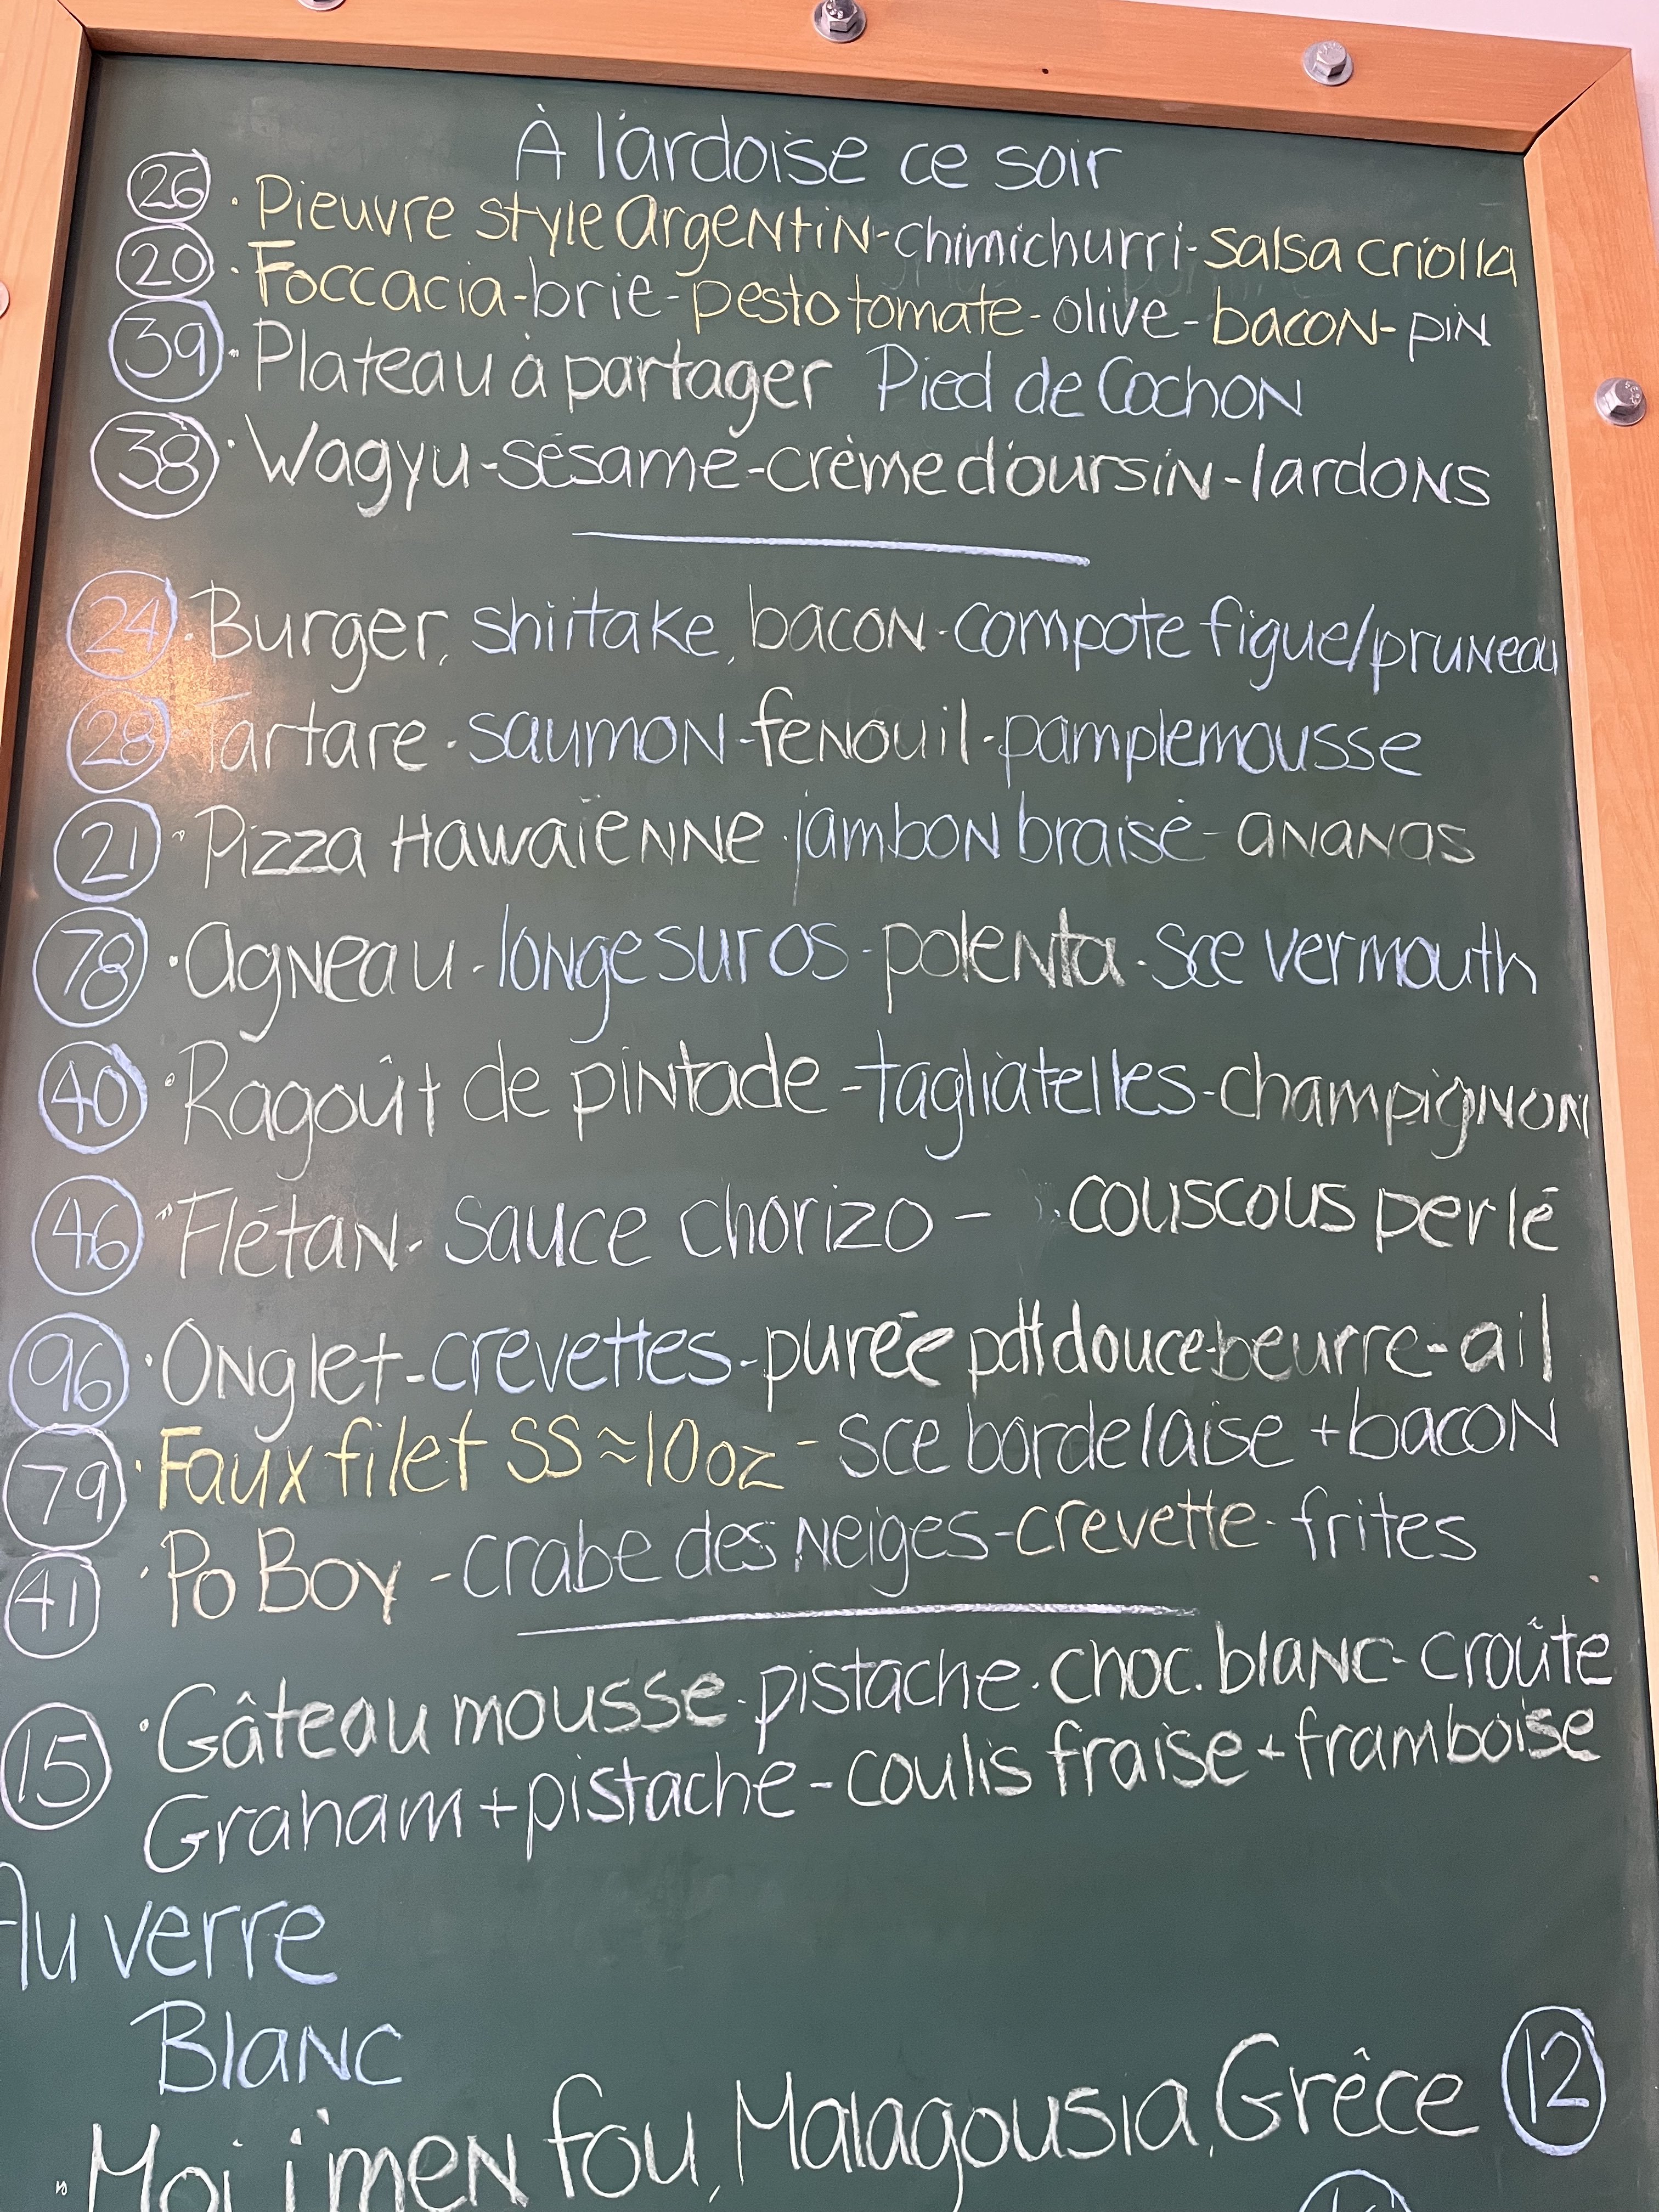 À l'ardoise ce soir
26 · Pieuvre style Argentin - chimichurri - salsa criolla
20 · Foccacia - brie - pesto tomate - olive - bacon - pin
39 · Plateau à partager Pied de Cochon
38 · Wagyu - sésame - crème d'oursin - lardons
24 · Burger, shiitake, bacon - compote figue/pruneau
28 Tartare · saumon - fenouil · pamplemousse
21 · Pizza Hawaïenne · jambon braisé - ananas
78 · Agneau - longe sur os - polenta · sce vermouth
40 · Ragoût de pintade - tagliatelles - champignon
46 · Flétan - sauce chorizo - couscous perlé
96 · Onglet - crevettes - purée pdt douce - beurre - ail
79 · Faux filet SS ≈ 10oz - sce bordelaise + bacon
41 · Po Boy - crabe des neiges - crevette - frites
15 · Gâteau mousse · pistache · choc. blanc - croûte
Graham + pistache - coulis fraise + framboise
Au verre
Blanc
· Moi j'men fou, Malagousia, Grêce 12